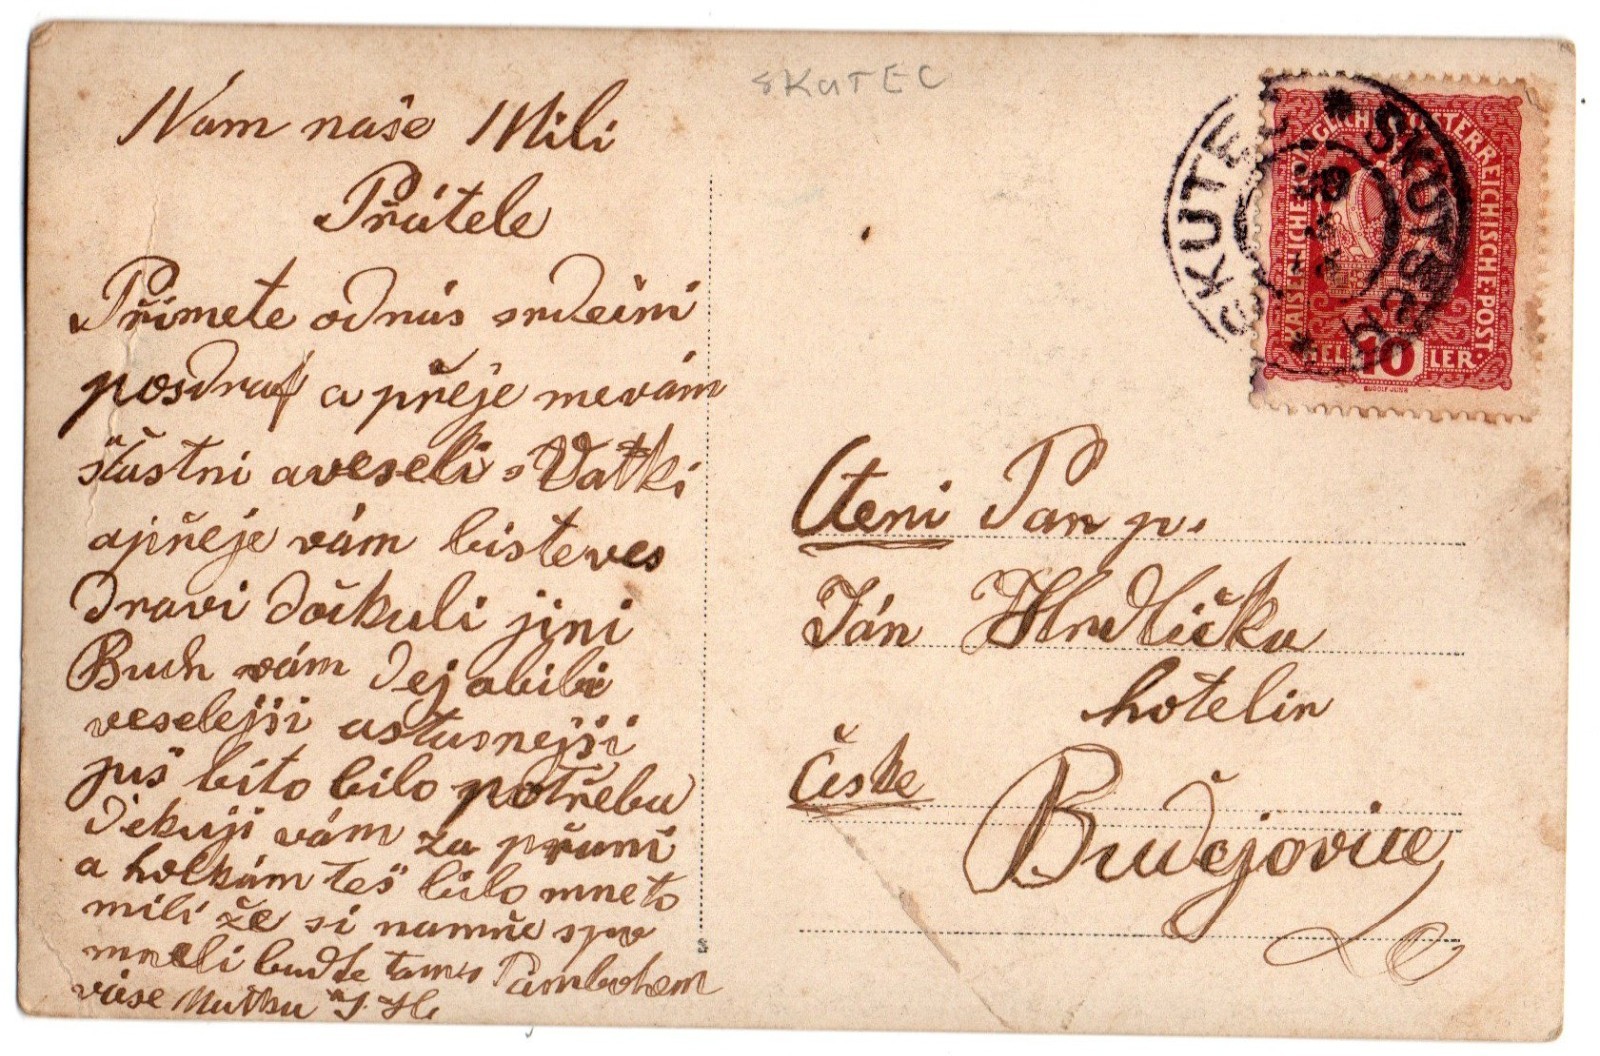 SKUTEC
Nám naše Mili
Přátele
Přimete odnás srdečni
posdraf a přeje mevám
šťastni aveseli svatki
apřeje vám bisteves
dravi dočkali jini
Buch vám dej abili
veselejši astasnejši
juš bito bilo potřeba
dekuji vám za přani
a holkám teš bilo mneto
mili že si namne spo
mneli buďte tam s Pambohem
váse Matka J. H.
SKUTEČ * SKUTSCH *
KAISERLICHE KÖNIGLICHE ÖSTERREICHISCHE POST
HELLER
10
RUDOLF JUNK
Cteni Pan p.
Ján Hrdlička
hotelin
České
Budějovice